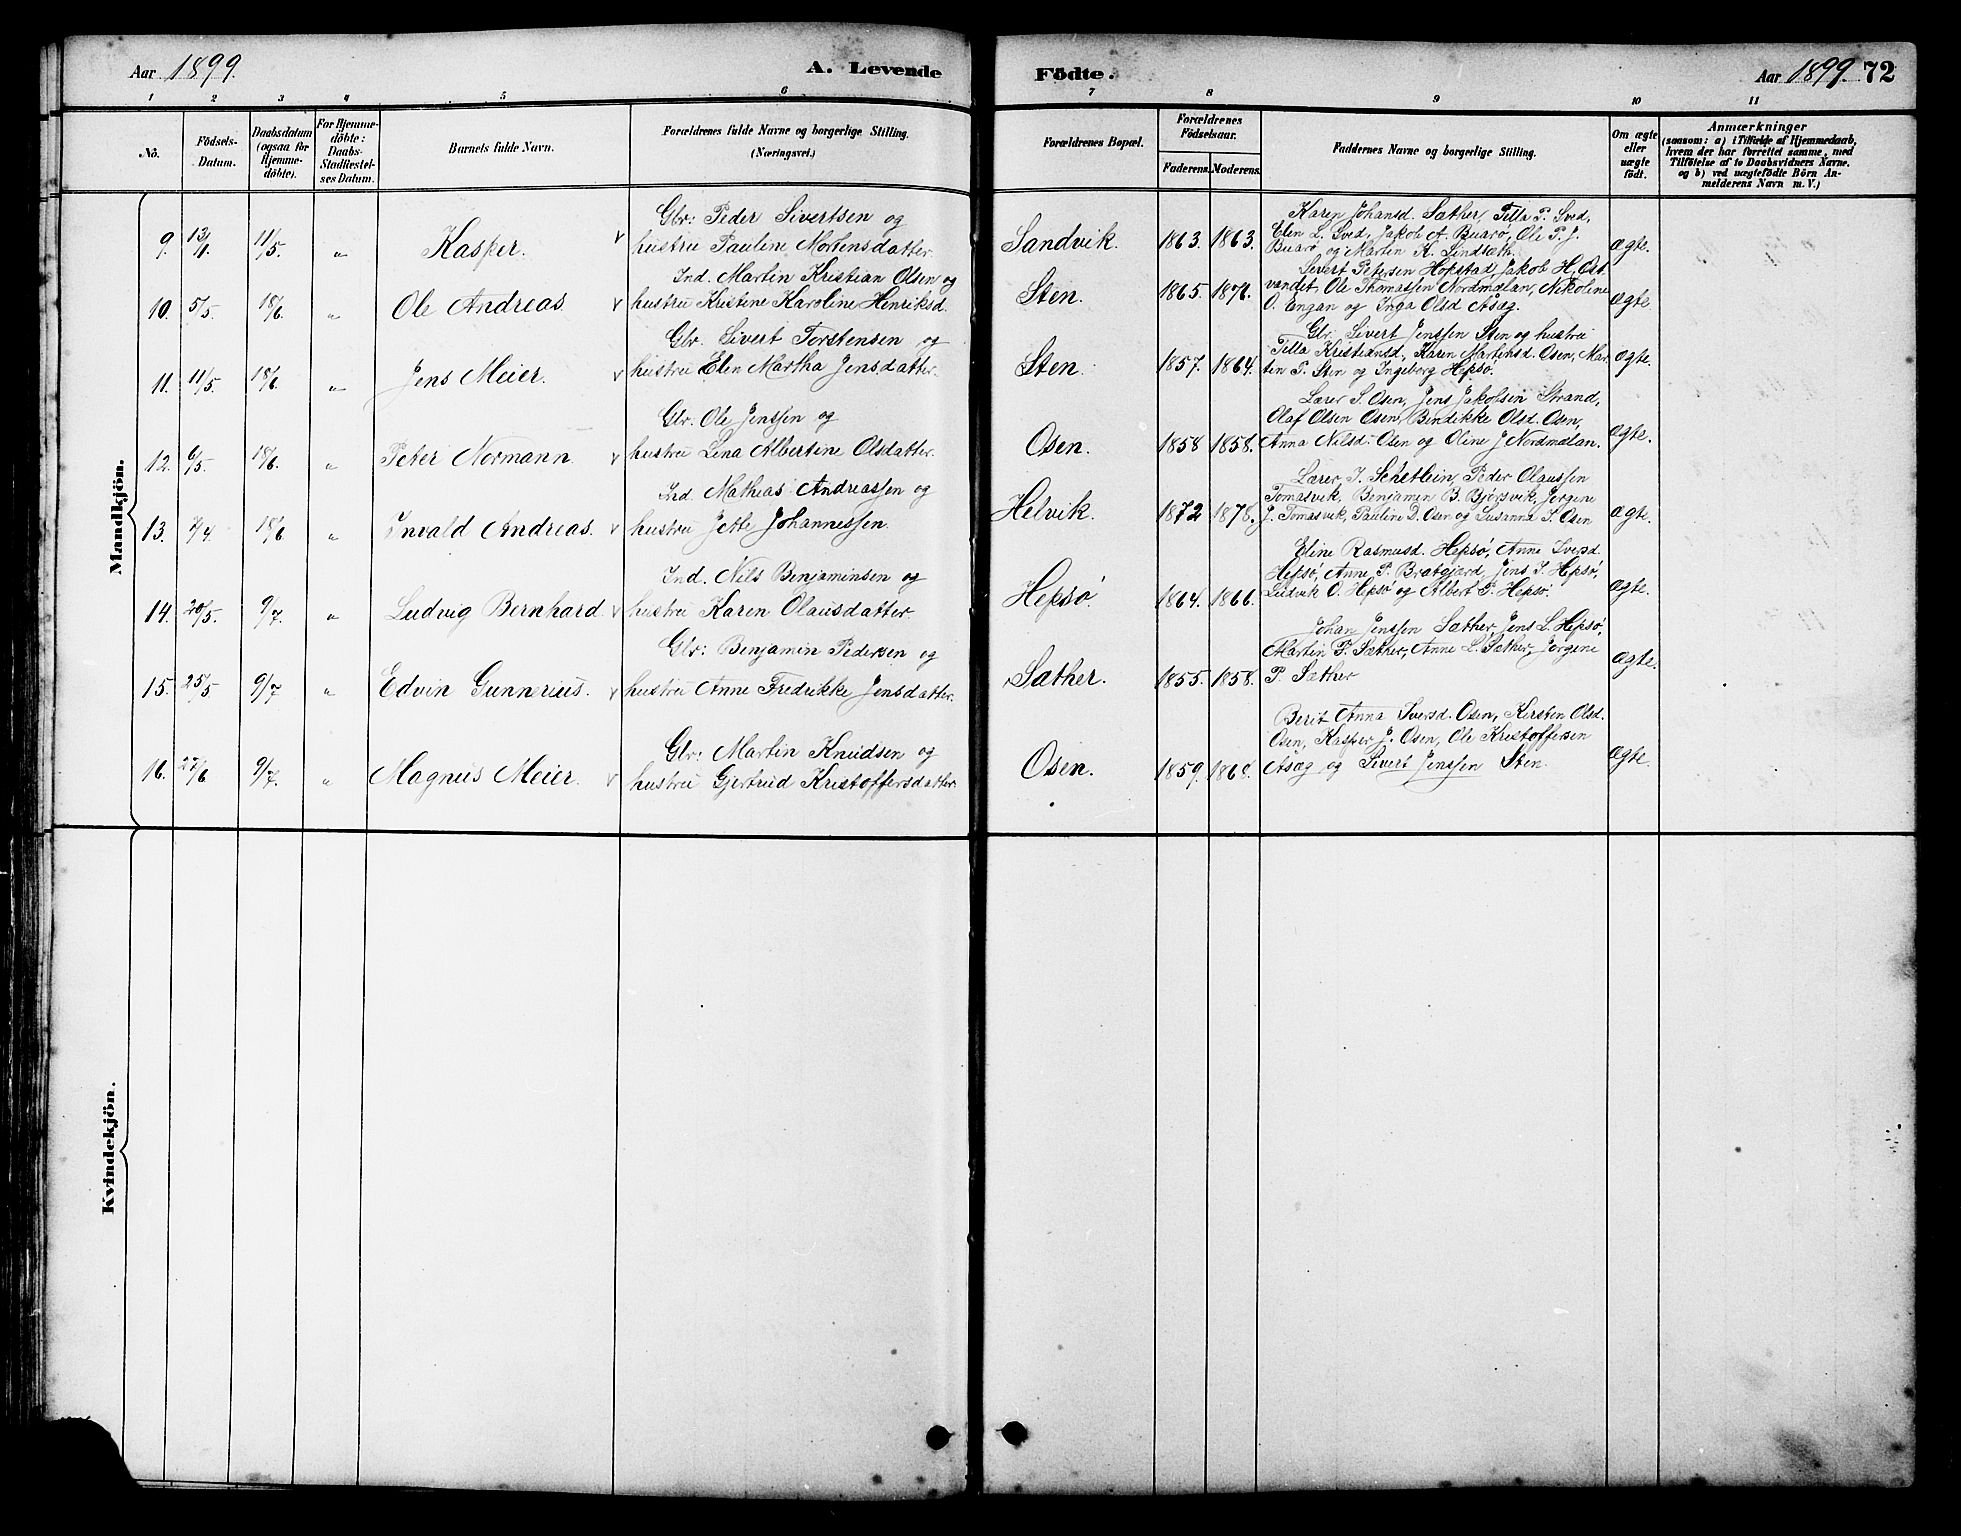 Aar 1899. A. Levende Födte. Aar 1899. 72
1 2 3 4 5 6 7 8 9 10 11
No. Födsels-Datum. Daabsdatum (ogsaa for Hjemmedöbte). For Hjemmedöbte: Daabs-Stadfæstelses Datum. Barnets fulde Navn. Forældrenes fulde Navne og borgerlige Stilling. (Næringsvei.) Forældrenes Bopæl. Forældrenes Födselsaar. Faderens. Moderens. Faddernes Navne og borgerlige Stilling. Om ægte eller uægte födt. Anmærkninger (saasom: a) i Tilfælde af Hjemmedaab, hvem der har forrettet samme, med Tilföielse af to Daabsvidners Navne, og b) ved uægtefödte Börn Anmelderens Navn m. V.)
Mandkjön.
Gbr: Peder Sivertsen og
9. 13/4. 11/5. „ Kasper. v hustru Pauline Mortensdatter. Sandvik. 1863. 1863.
Karen Johansd. Sæther, Pella P. Sved,
Elen L. Sved, Jakob A. Buarø, Ole P. J.
Buarø og Martin K. Lindsæth. ægte.
Ind. Martin Kristian Olsen og
10. 5/5. 18/6. „ Ole Andreas v hustru Kristine Karoline Henriksd. Sten. 1865. 1876.
Sivert Petersen Hopstad, Jakob H. Ost
vandet, Ole Thomassen Nordmælan, Nikoline
O. Engan og Inga Olsd Asæg. ægte
Gbr. Sivert Torstensen og
11. 11/5. 18/6. „ Jens Meier. v hustru Elen Martha Jensdatter. Sten. 1857. 1864.
Gbr. Sivert Jenssen Sten og hustru
Pella Kristiansd, Karen Martinsd. Osen, Mar
tin P. Sten og Ingeborg Hepsø. ægte.
Gbr. Ole Jenssen og
12. 6/5. 18/6. „ Peter Normann. v hustru Lina Albertine Olsdatter. Osen. 1858 1858.
Lærer S. Osen, Jens Jakobsen Strand,
Olaf Olsen Osen, Bendikke Olsd. Osen,
Anna Nilsd. Osen og Oline J. Nordmælan. ægte.
Ind. Mathias Andreassen og
13. 2/4. 18/6. „ Invald Andreas. v hustru Jetle Johannessen. Helvik. 1872 1878.
Lærer I. Schetlein, Peder Olaussen
Tomasvik, Benjamin B. Bjørsvik, Jørgine
J. Tomasvik, Pauline D. Osen og Susanna S. Osen ægte.
Ind. Nils Benjaminsen og
14. 20/5. 9/7. „ Ludvig Bernhard v hustru Karen Olausdatter. Hepsø. 1864. 1866.
Eline Rasmusd. Hepsø, Anne Iversd.
Hepsø, Anne P. Bratgjærd, Jens I. Hepsø,
Ludvik O. Hepsø og Albert P. Hepsø. ægte.
Gbr: Benjamin Pedersen og
15. 25/5 9/7. „ Edvin Gunnerius. v hustru Anne Fredrikke Jensdatter. Sæther. 1855. 1858.
Johan Jenssen Sæther, Jens L. Hepsø,
Martin P. Sæther, Anne L. Sæther, Jørgine
P. Sæther ægte.
Gbr: Martin Knudsen og
16. 27/6 9/7. „ Magnus Meier. v hustru Gjertrud Kristoffersdatter. Osen. 1859. 1868.
Berit Anna Iversd. Osen, Kirsten Olsd.
Osen, Kasper J. Osen, Ole Kristoffersen
Asæg og Sivert Jenssen Sten. ægte.
Kvindekjön.